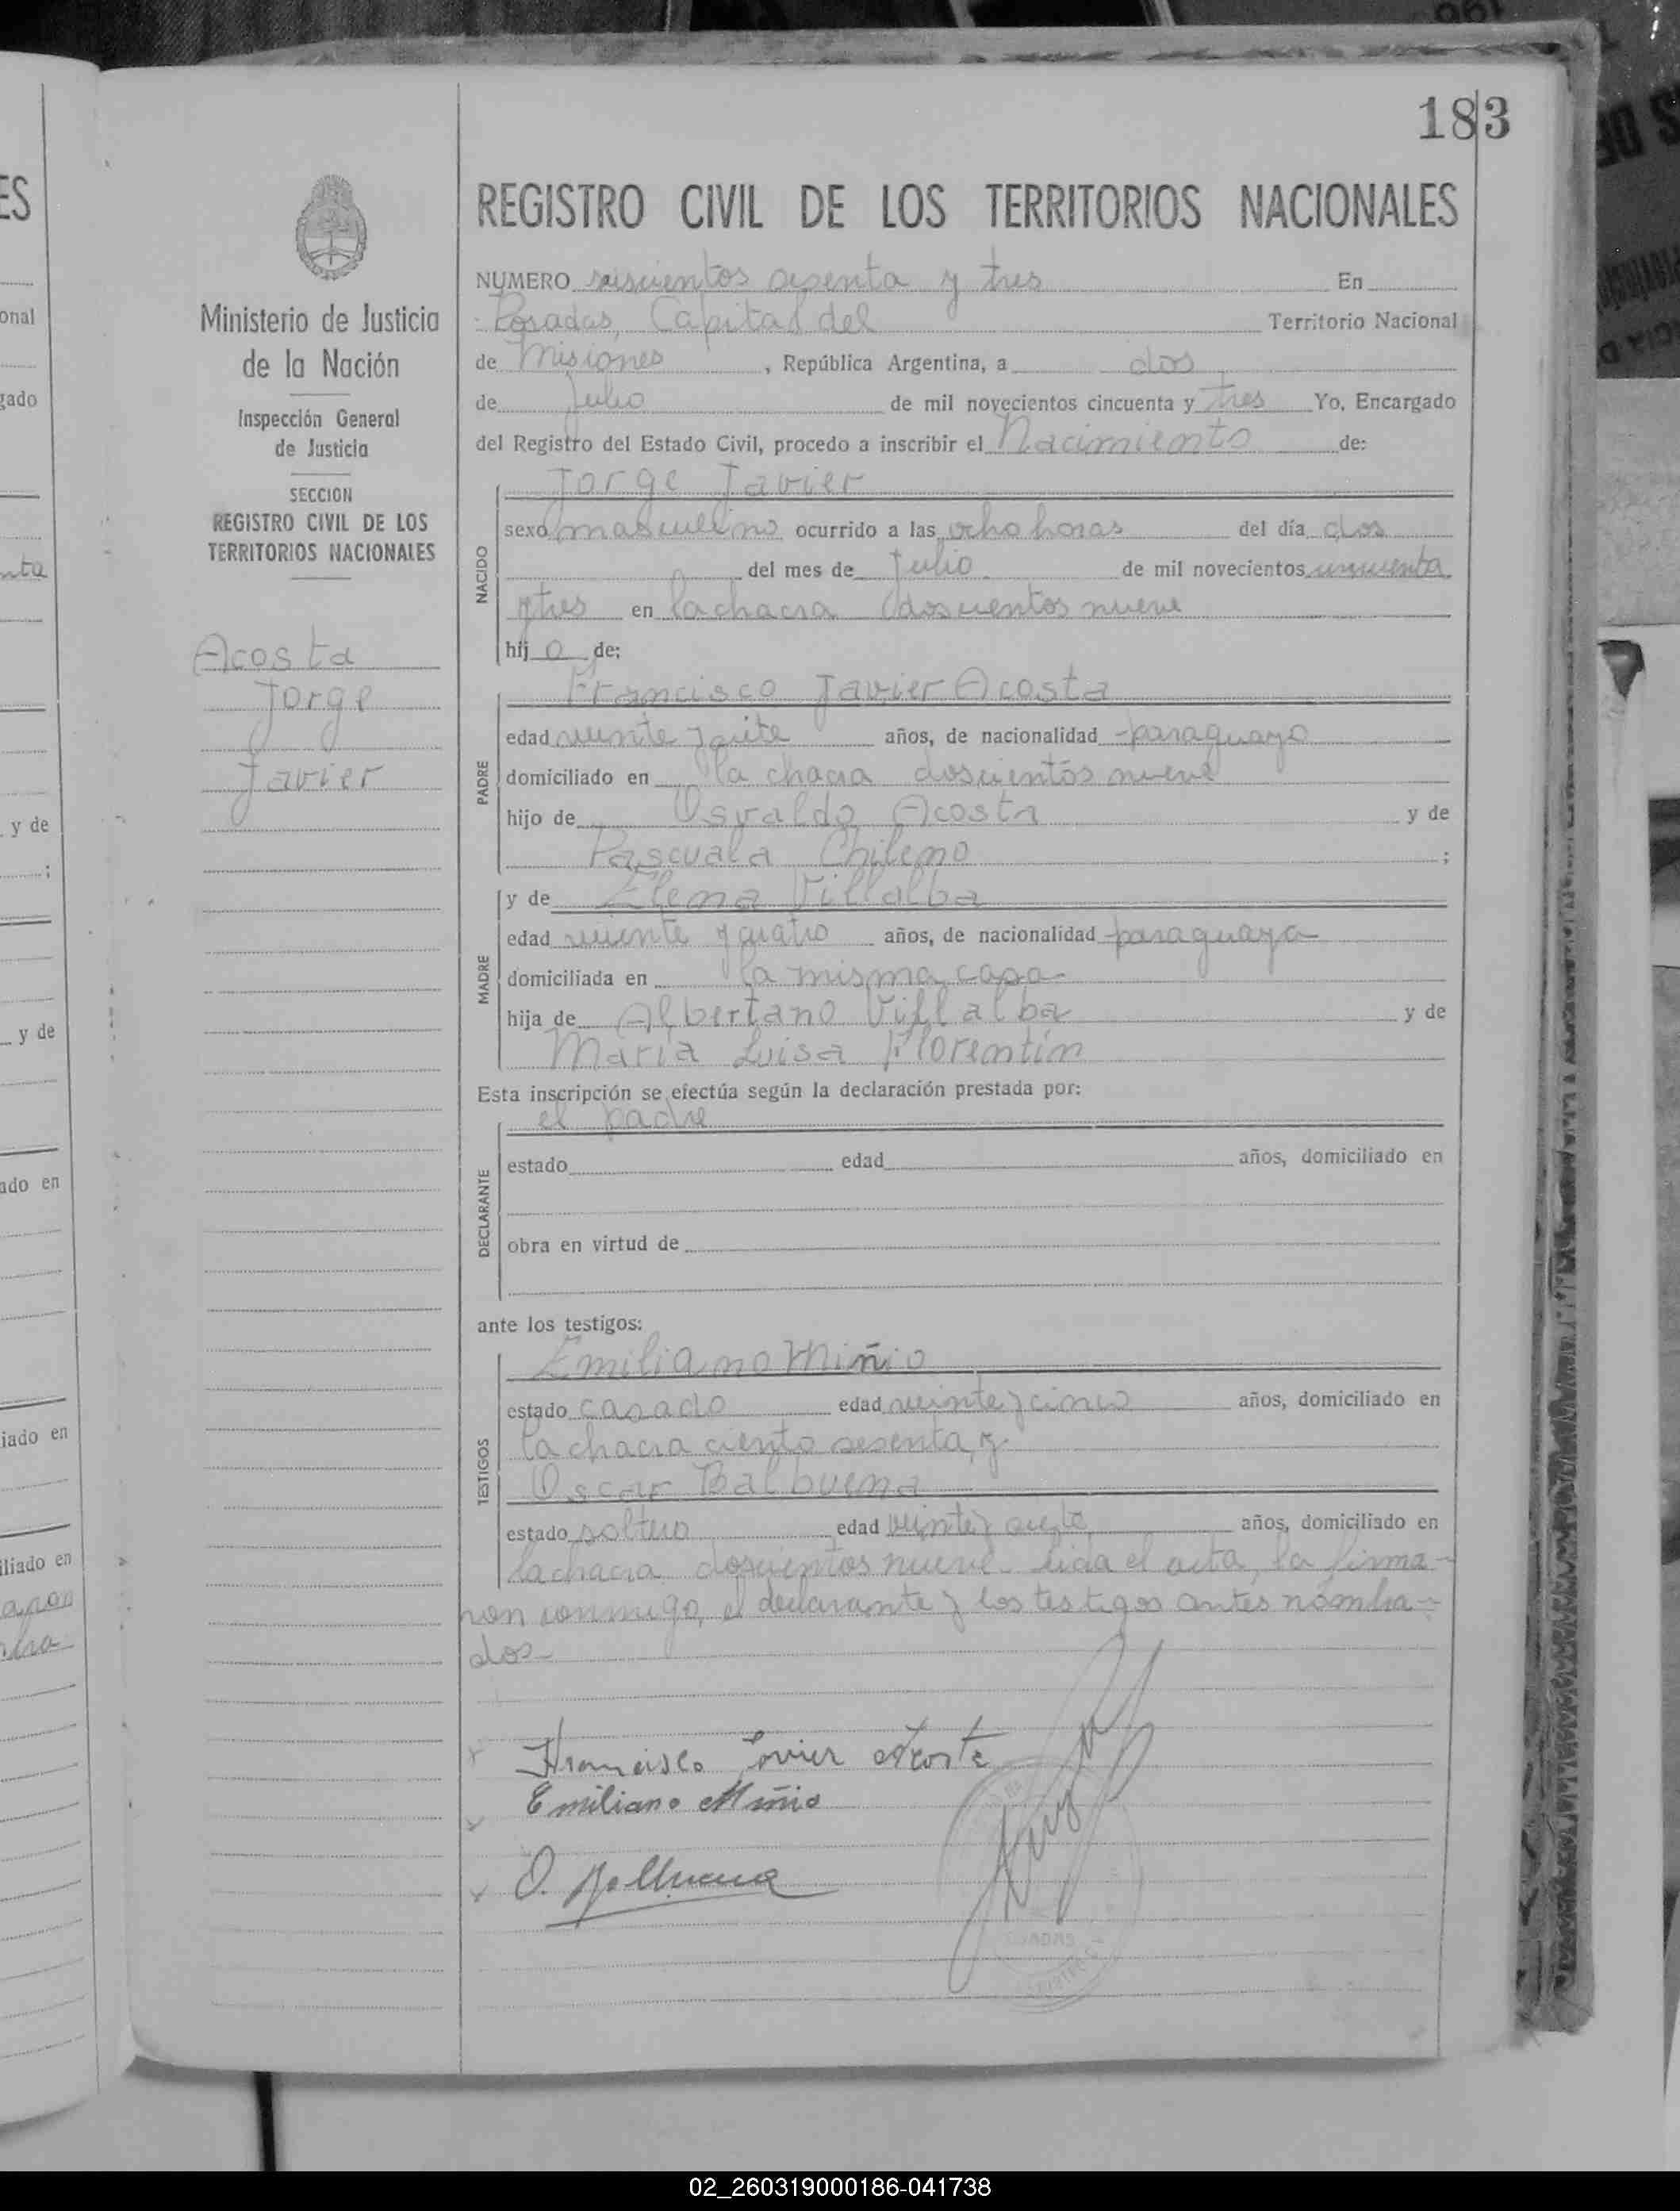 183
REGISTRO CIVIL DE LOS TERRITORIOS NACIONALES
Ministerio de Justicia
de la Nación
Inspección General
de Justicia
SECCION
REGISTRO CIVIL DE LOS
TERRITORIOS NACIONALES
Acosta
Jorge
Javier
NUMERO seiscientos sesenta y tres En
Posadas, Capital del Territorio Nacional
de Misiones, República Argentina, a dos
de Julio de mil novecientos cincuenta y tres Yo, Encargado
del Registro del Estado Civil, procedo a inscribir el Nacimiento de:
NACIDO
Jorge Javier
sexo masculino ocurrido a las ocho horas del día dos
del mes de Julio de mil novecientos cincuenta
y tres en la chacra doscientos nueve
hijo de:
PADRE
Francisco Javier Acosta
edad veinte y siete años, de nacionalidad paraguayo
domiciliado en la chacra doscientos nueve
hijo de Osvaldo Acosta y de
Pascuala Chileno ;
MADRE
y de Elena Villalba
edad veinte y cuatro años, de nacionalidad paraguaya
domiciliada en la misma casa
hija de Albertano Villalba y de
María Luisa Florentín
Esta inscripción se efectúa según la declaración prestada por:
DECLARANTE
el padre
estado edad años, domiciliado en
obra en virtud de
ante los testigos:
TESTIGOS
Emiliano Miñio
estado casado edad veinte y cinco años, domiciliado en
la chacra ciento sesenta, y
Oscar Balbuena
estado soltero edad veinte y siete años, domiciliado en
la chacra doscientos nueve. Leida el acta, la firma-
ron conmigo, el declarante y los testigos antes nombra-
dos-
Francisco Javier Acosta
Emiliano Miñio
O. Balbuena
02_260319000186-041738